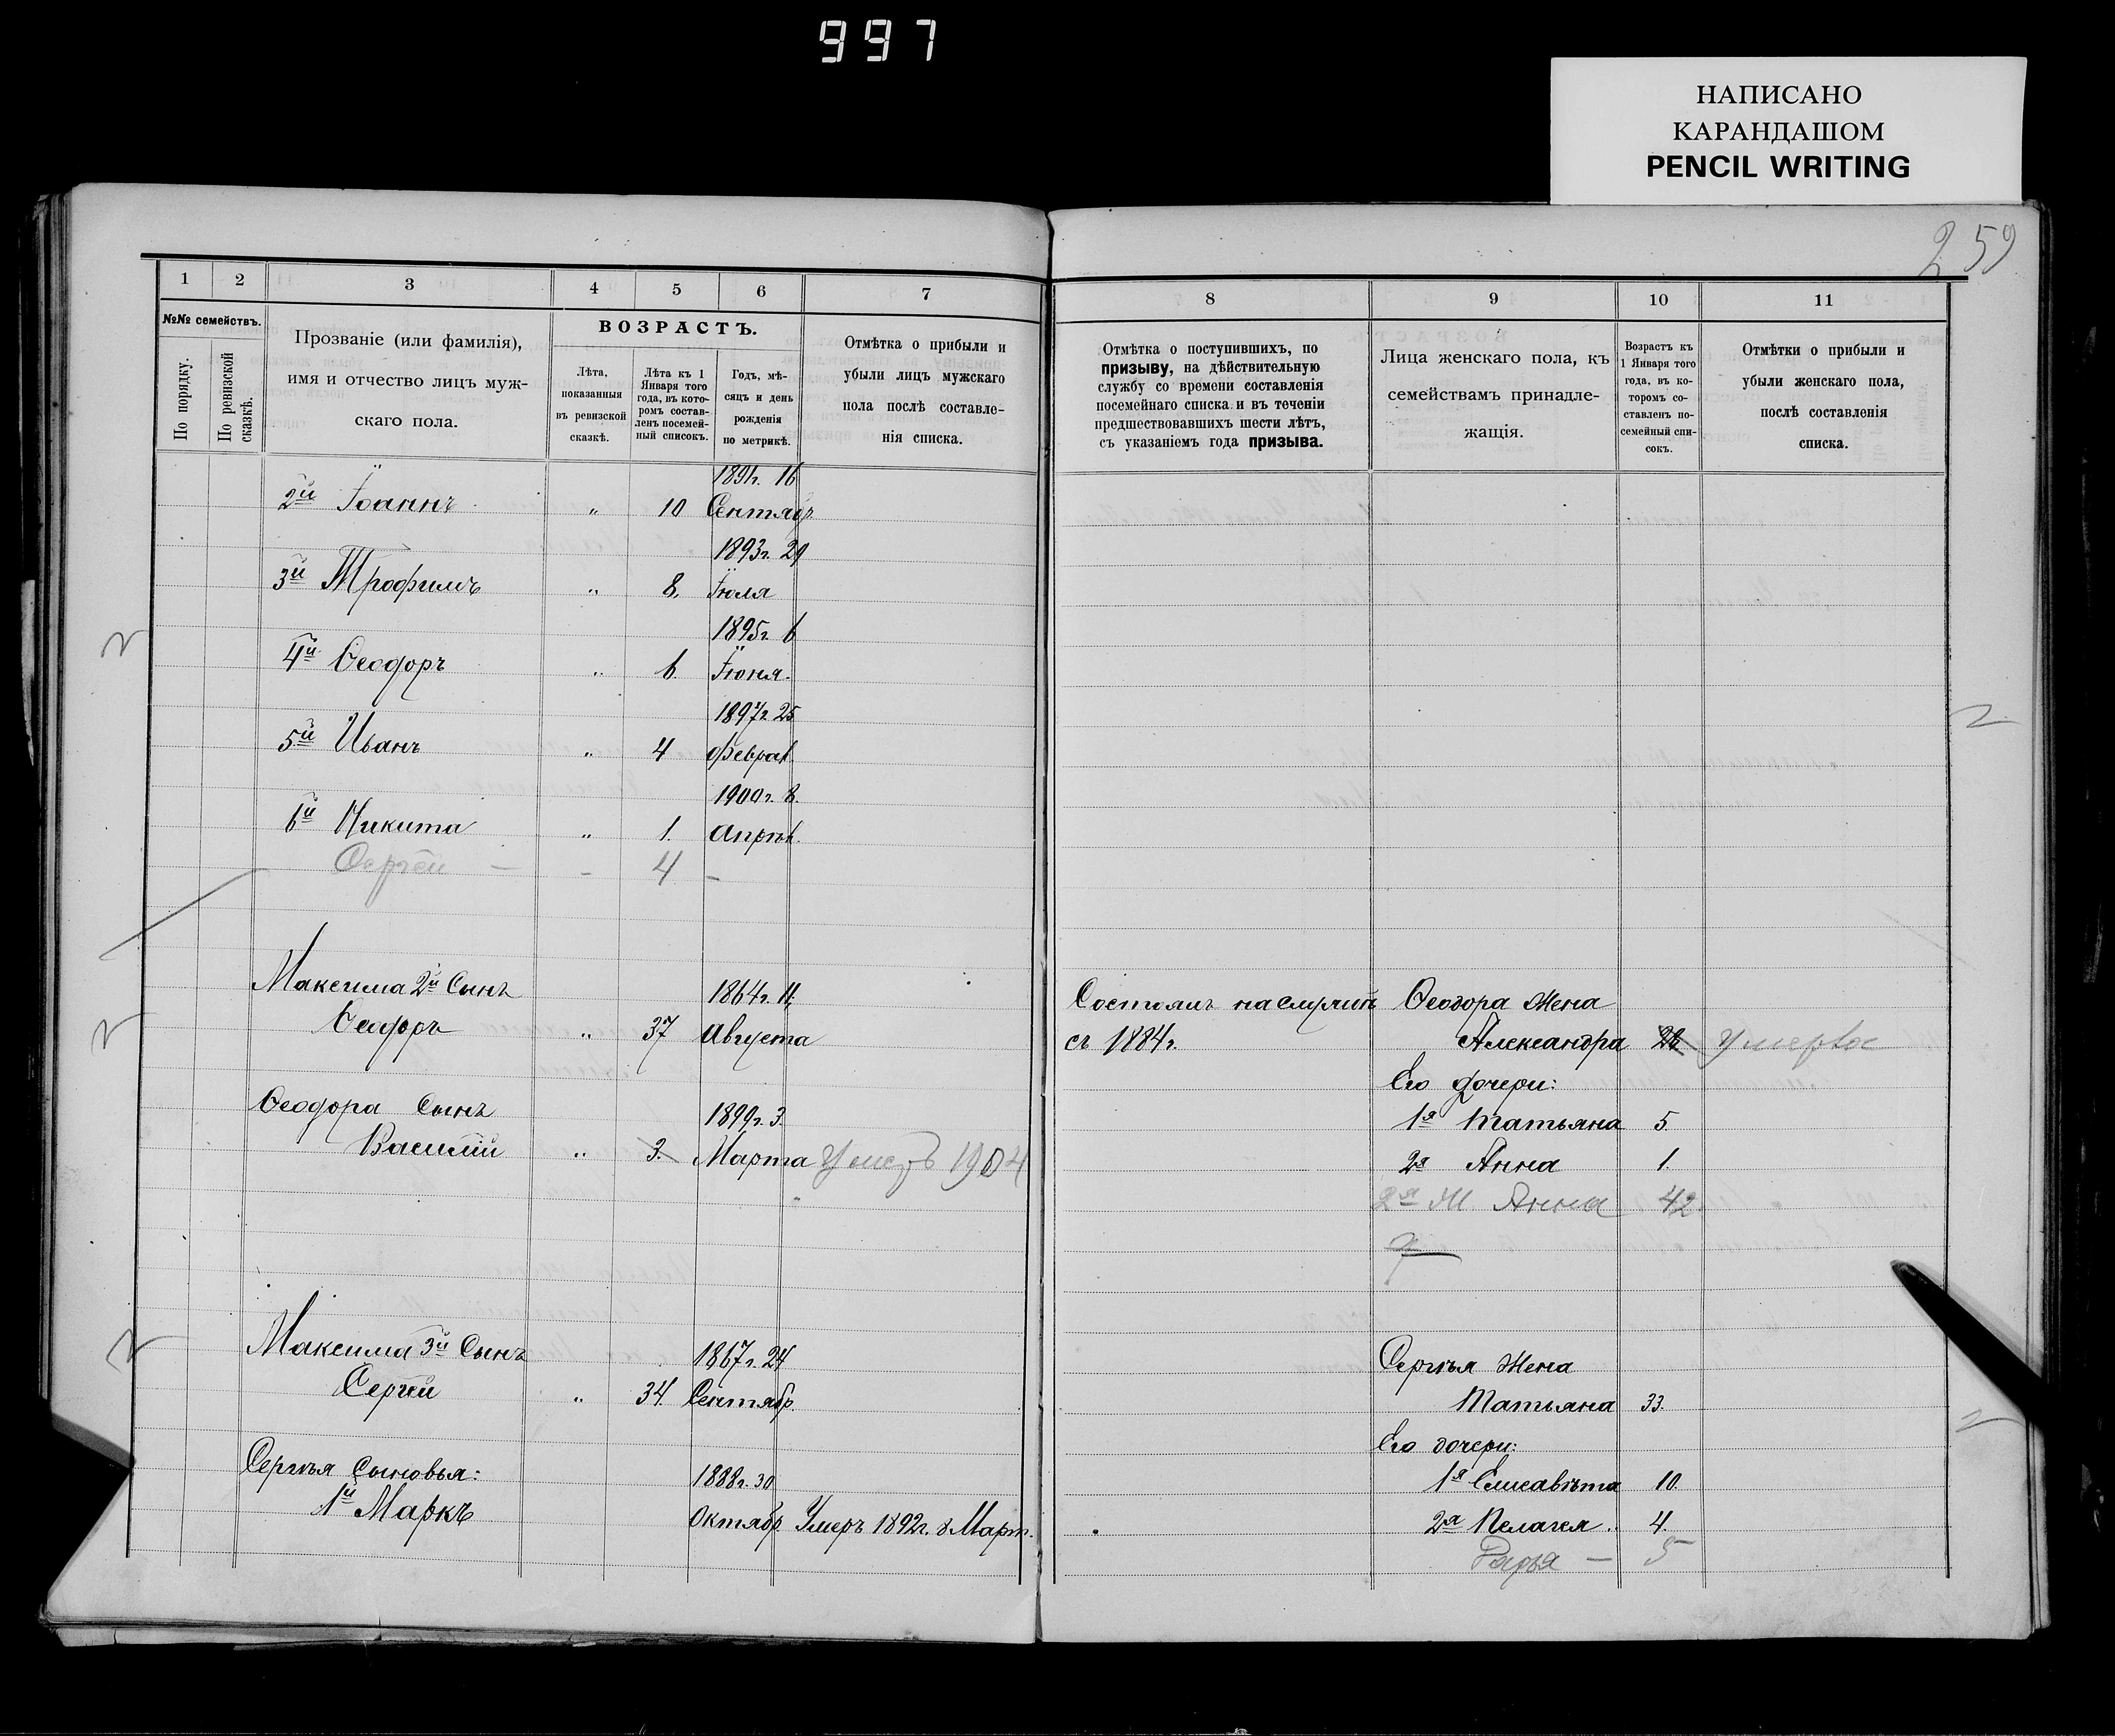 997
НАПИСАНО
КАРАНДАШОМ
PENCIL WRITING
259
1 2 3 4 5 6 7
№№ семействъ.
По порядку.
По ревизской сказкѣ.
Прозваніе (или фамилія),
имя и отчество лицъ муж-
скаго пола.
ВОЗРАСТЪ.
Лѣта,
показанныя
въ ревизской
сказкѣ.
Лѣта къ 1
Января того
года, въ кото-
ромъ состав-
ленъ посемей-
ный списокъ.
Годъ, мѣ-
сяцъ и день
рожденія
по метрикѣ.
Отмѣтка о прибыли и
убыли лицъ мужскаго
пола послѣ составле-
нія списка.
1891г. 16
2й Іоаннъ „ 10 Сентябр.
1893г. 29
3й Трофимъ „ 8. Іюля
1895г. 6
4й Ѳеодоръ „ 6. Іюня.
1897г. 25
5й Иванъ „ 4 Феврал.
1900г. 8.
6й Никита „ 1. Апрѣл.
Сергѣй — - 4 -
Максима 2й Сынъ 1864г. 11.
Ѳеодоръ „ 37 Августа
Ѳеодора Сынъ 1899г. 3
Василій „ 3. Марта Умеръ 1904
Максима 3й Сынъ 1867г. 24
Сергѣй „ 34. Сентябр.
Сергѣя Сыновья: 1888г. 30
1й Маркъ Октябр. Умеръ 1892г. 8 Март.
8 9 10 11
Отмѣтка о поступившихъ, по
призыву, на дѣйствительную
службу со времени составленія
посемейнаго списка и въ теченіи
предшествовавшихъ шести лѣтъ,
съ указаніемъ года призыва.
Лица женскаго пола, къ
семействамъ принадле-
жащія.
Возрастъ къ
1 Января того
года, въ ко-
торомъ со-
ставленъ по-
семейный спи-
сокъ.
Отмѣтки о прибыли и
убыли женскаго пола,
послѣ составленія
списка.
Состоялъ на службѣ Ѳеодора Жена
съ 1884г. Александра Умерла
Его дочери:
1я Татьяна 5
2я Анна 1.
2я Ж. Анна 42
Сергѣя Жена
Татьяна 33.
Его дочери:
1я Елисавѣта 10.
2я Пелагея. 4.
Дарья — 5